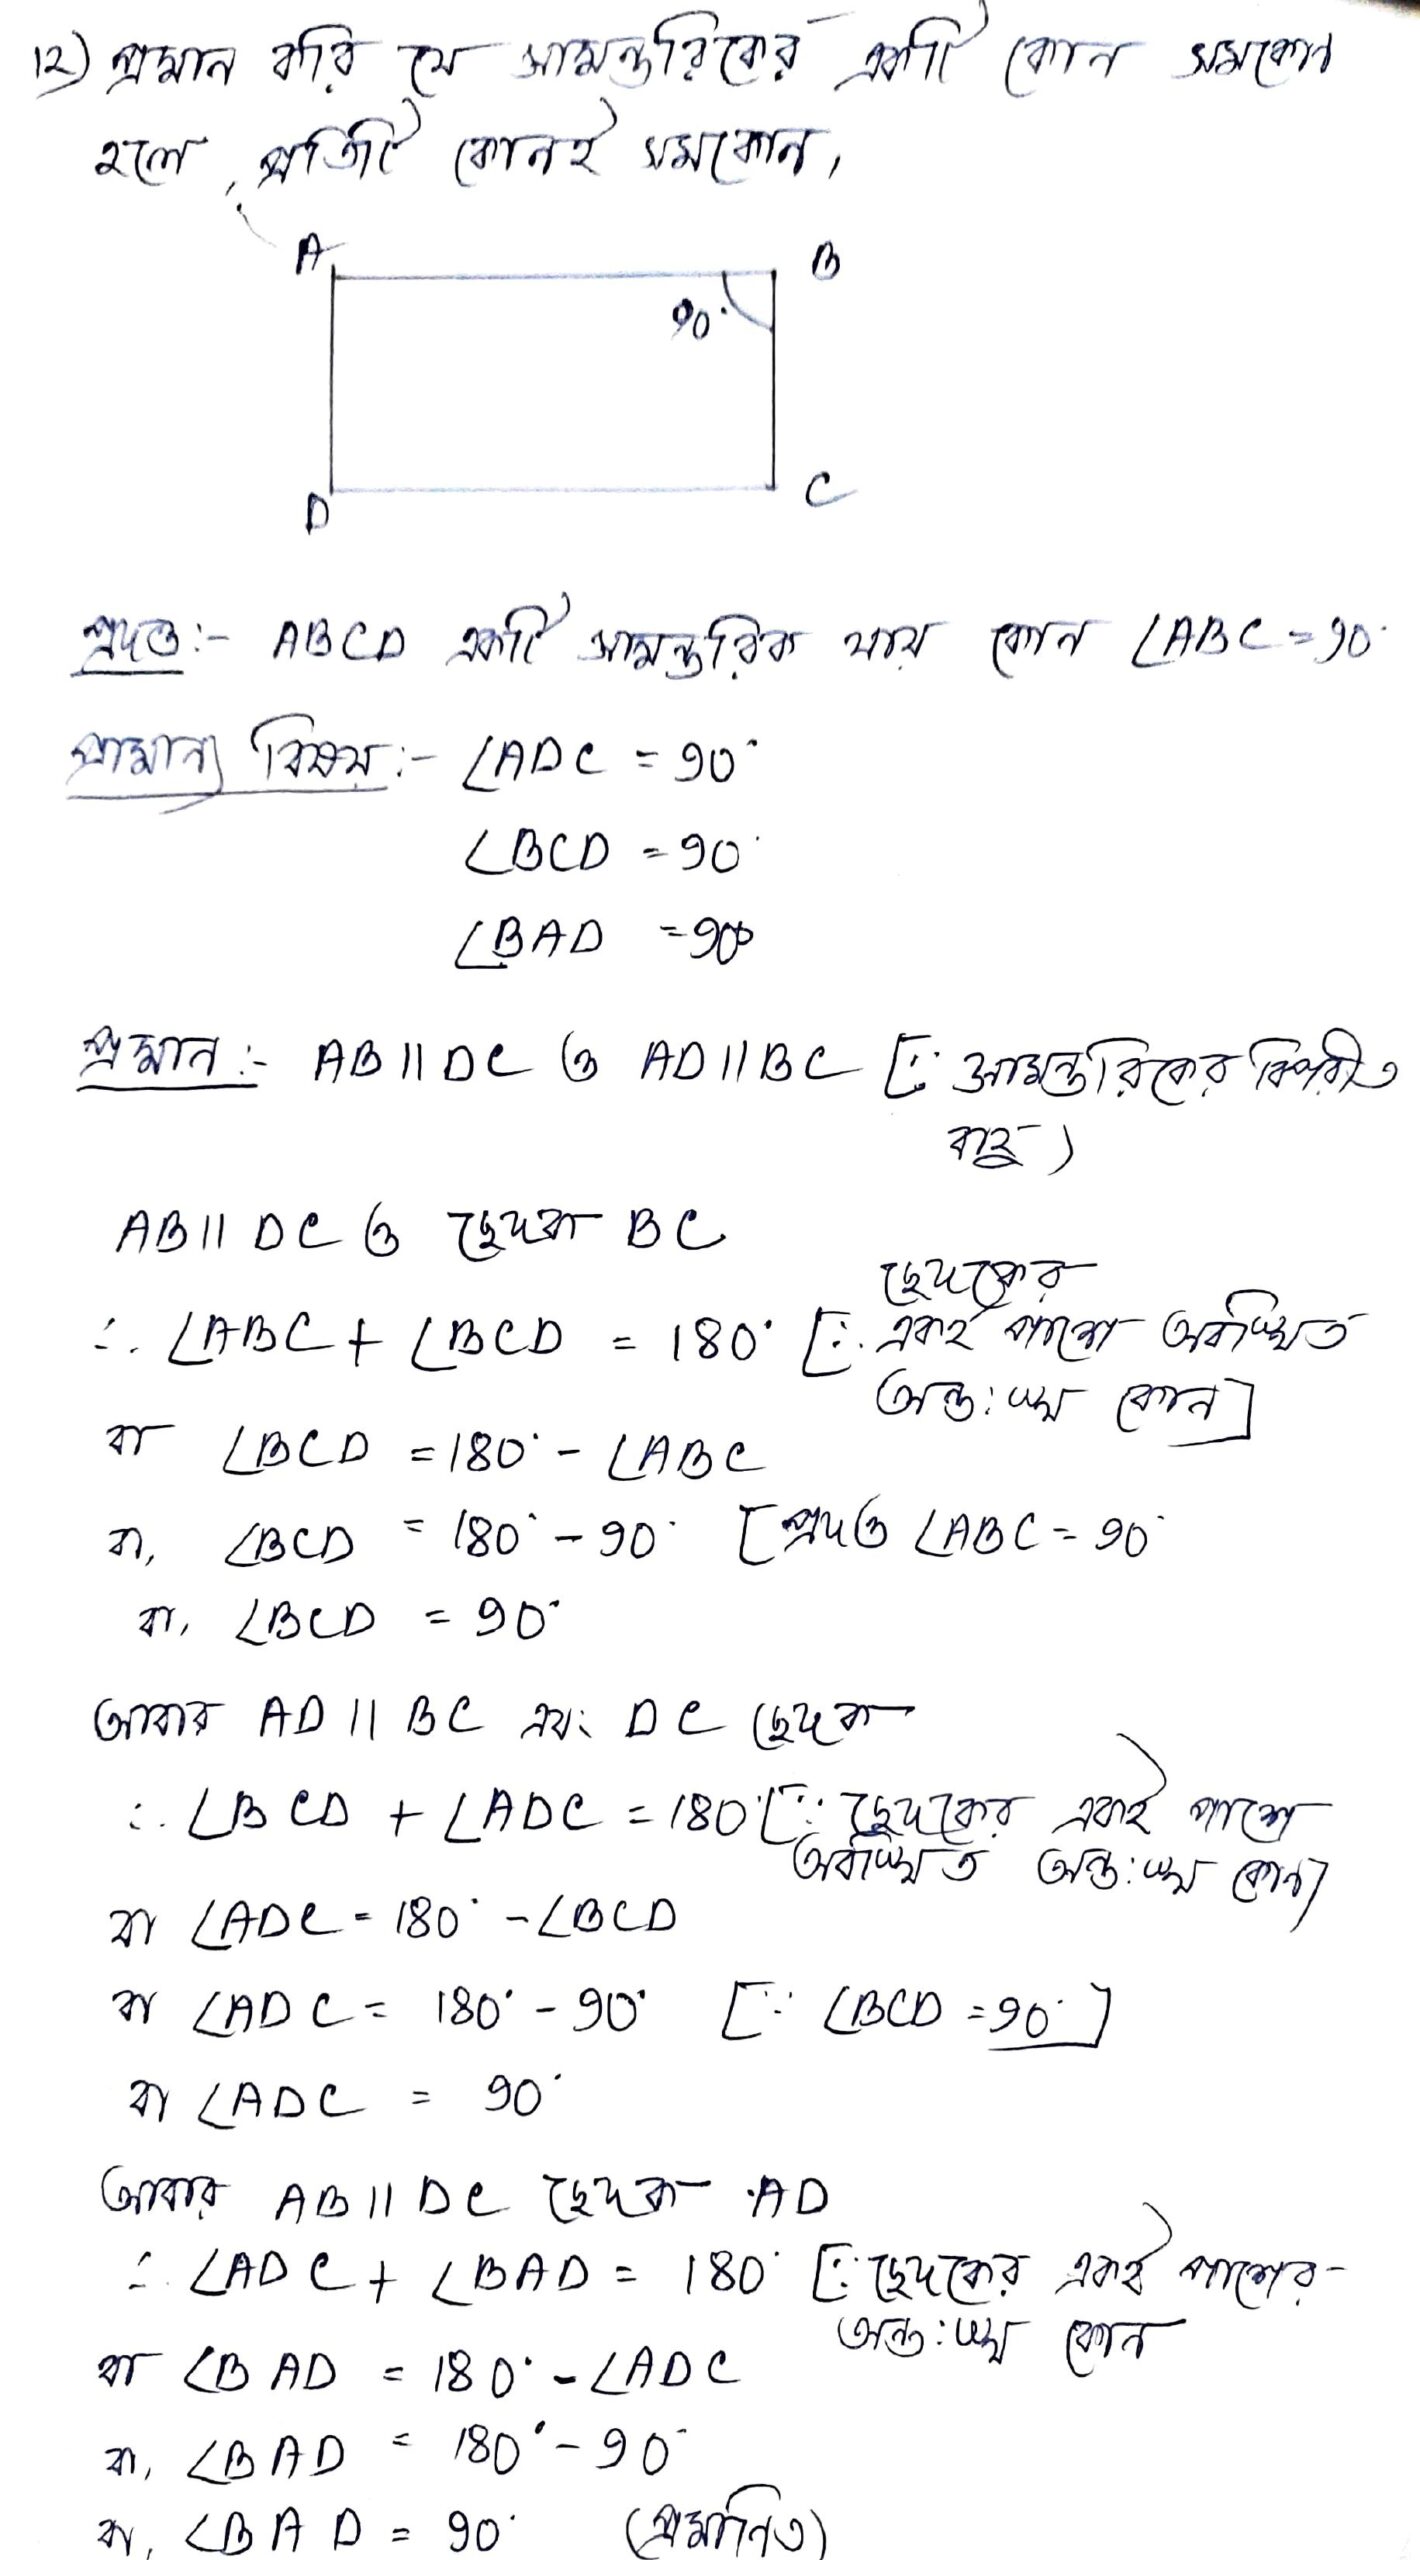 12) প্রমান করি যে সামন্তরিকের একটি কোন সমকোন
হলে, প্রতিটি কোনই সমকোন,
A
B
90°
D
C
প্রদত্ত:- ABCD একটি সামন্তরিক যায় কোন ∠ABC = 90°
প্রামান্য বিষয়:- ∠ADC = 90°
∠BCD = 90°
∠BAD = 90°
প্রমান:- AB || DC ও AD || BC [∵ সামন্তরিকের বিপরীত
বাহু)
AB || DC ও ছেদক BC
∴ ∠ABC + ∠BCD = 180° [∵ ছেদকের একই পাশে অবস্থিত
অন্ত:স্থ কোন]
বা ∠BCD = 180° - ∠ABC
বা, ∠BCD = 180° - 90° [প্রদত্ত ∠ABC = 90°
বা, ∠BCD = 90°
আবার AD || BC এবং DC ছেদক
∴ ∠BCD + ∠ADC = 180° [∵ ছেদকের একই পাশে
অবস্থিত অন্ত:স্থ কোন]
বা ∠ADC = 180° - ∠BCD
বা ∠ADC = 180° - 90° [∵ ∠BCD = 90°]
বা ∠ADC = 90°
আবার AB || DC ছেদক AD
∴ ∠ADC + ∠BAD = 180° [∵ ছেদকের একই পাশের
অন্ত:স্থ কোন
বা ∠BAD = 180° - ∠ADC
বা, ∠BAD = 180° - 90°
বা, ∠BAD = 90° (প্রমানিত)